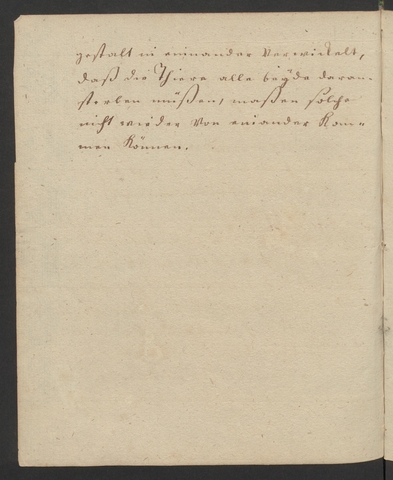 gestalt in einander verwickelt,
daß die Thiere alle beÿde daran
sterben müßen, maßen solche
nicht wieder von einander kom=
men können.